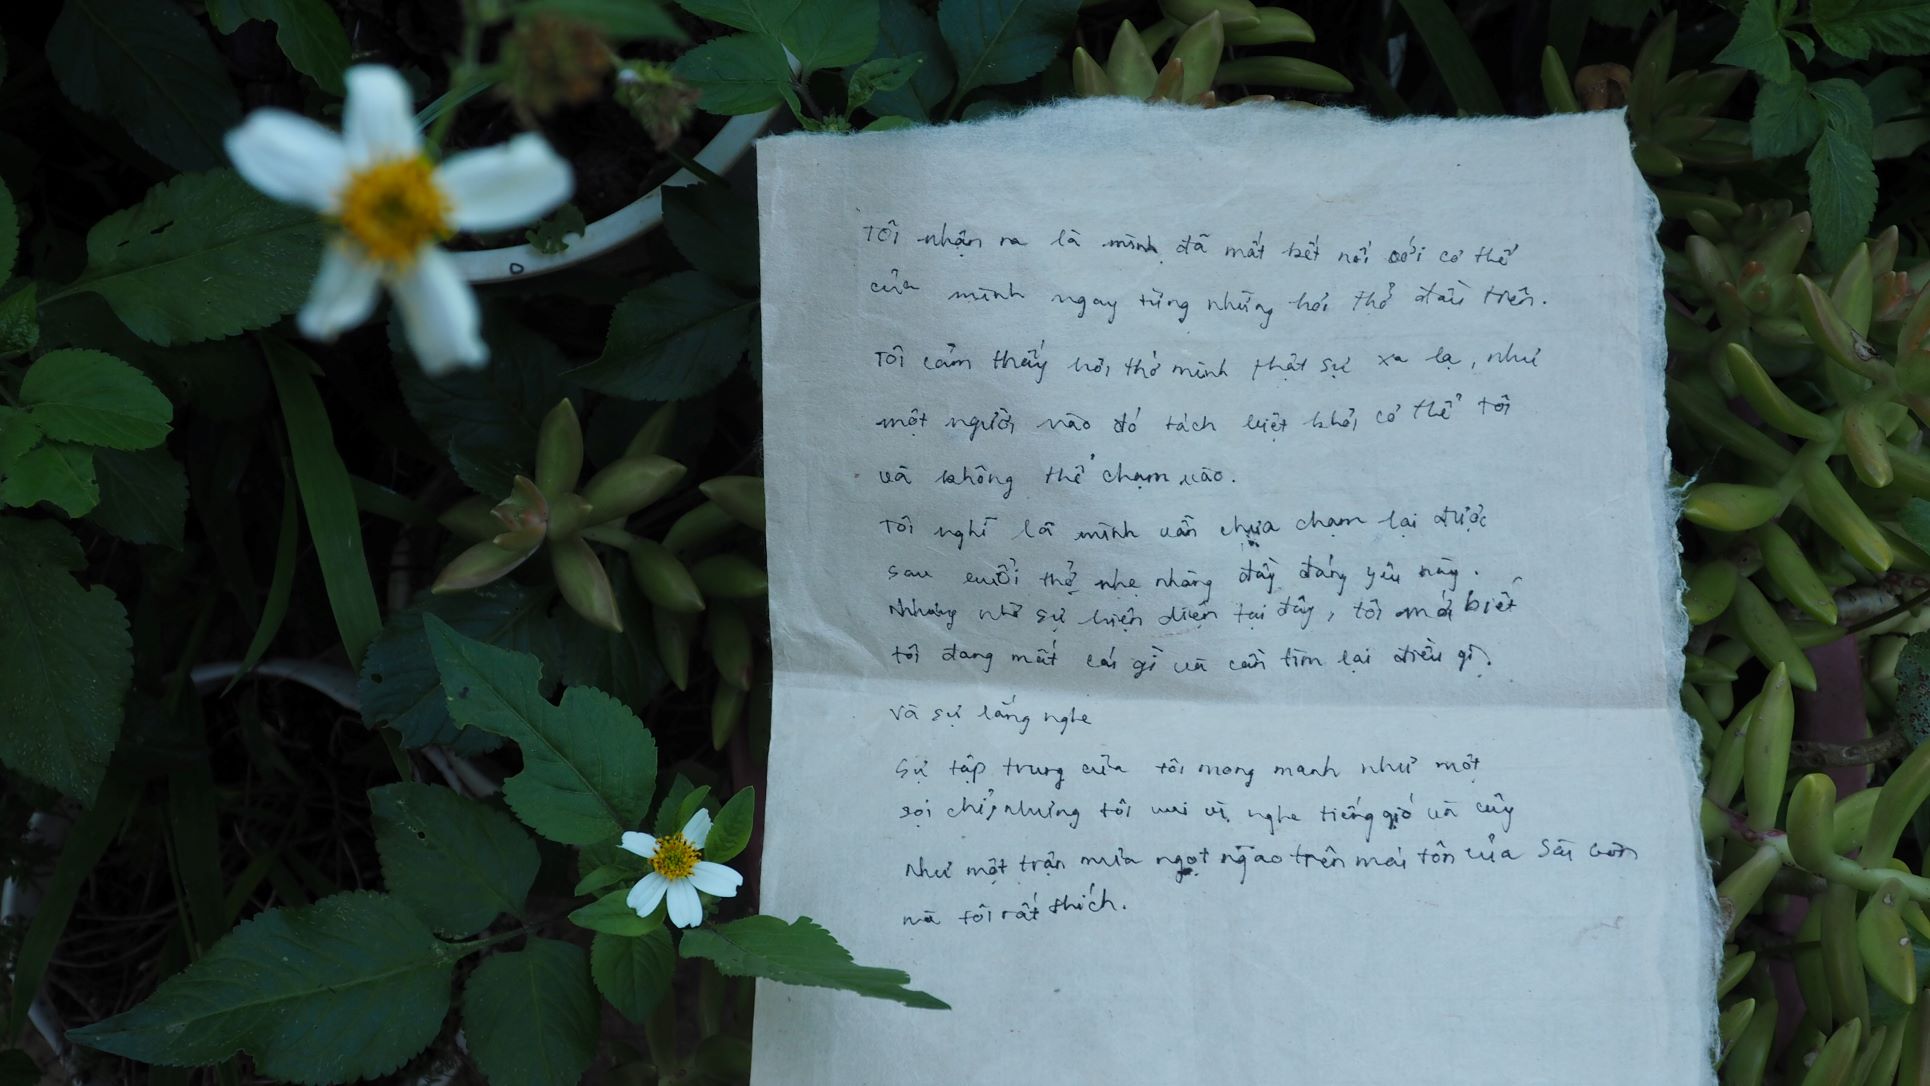 Tôi nhận ra là mình đã mất kết nối với cơ thể
của mình ngay từng những hơi thở đầu tiên.
Tôi cảm thấy hơi thở mình thật sự xa lạ, như
một người nào đó tách biệt khỏi cơ thể tôi
và không thể chạm vào.
Tôi nghĩ là mình vẫn chưa chạm lại được
sau buổi thở nhẹ nhàng đầy đáng yêu này.
Nhưng nhờ sự hiện diện tại đây, tôi mới biết
tôi đang mất cái gì và cần tìm lại điều gì.
Và sự lắng nghe
Sự tập trung của tôi mong manh như một
sợi chỉ, nhưng tôi vui vì nghe tiếng gió và cây
Như một trận mưa ngọt ngào trên mái tôn của Sài Gòn
mà tôi rất thích.